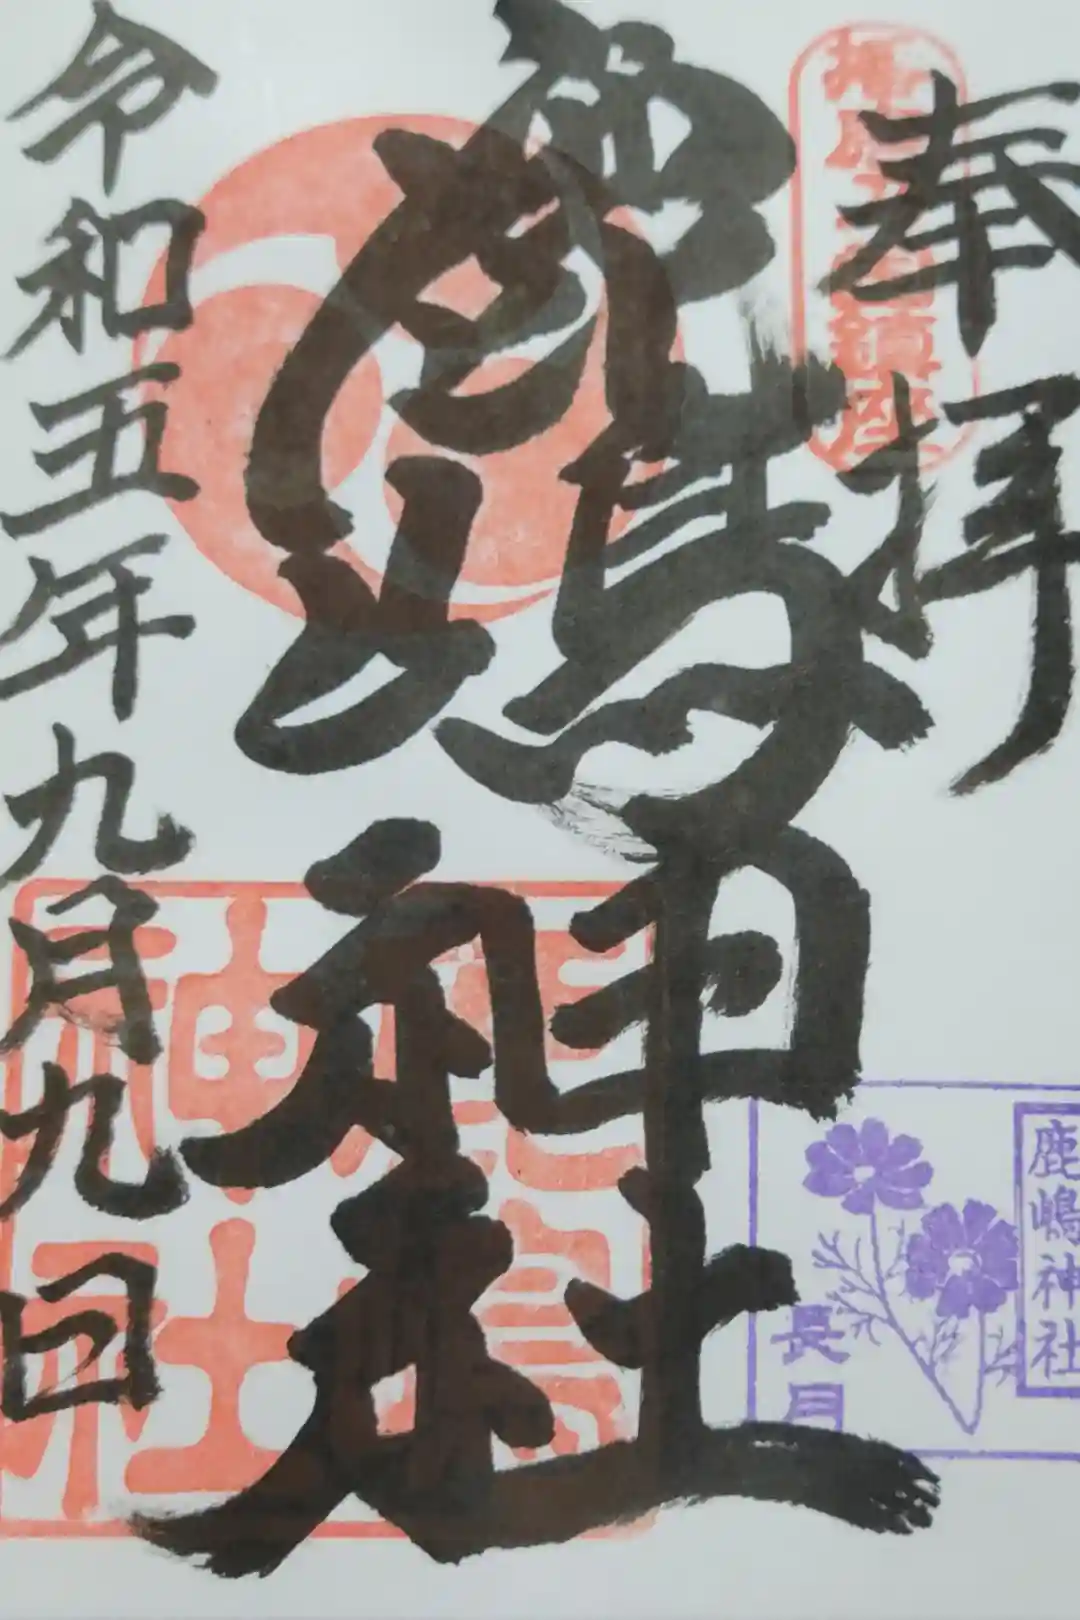 奉拝
鎮座
鹿嶋神社
令和五年九月九日
鹿嶋神社
鹿嶋神社
長月